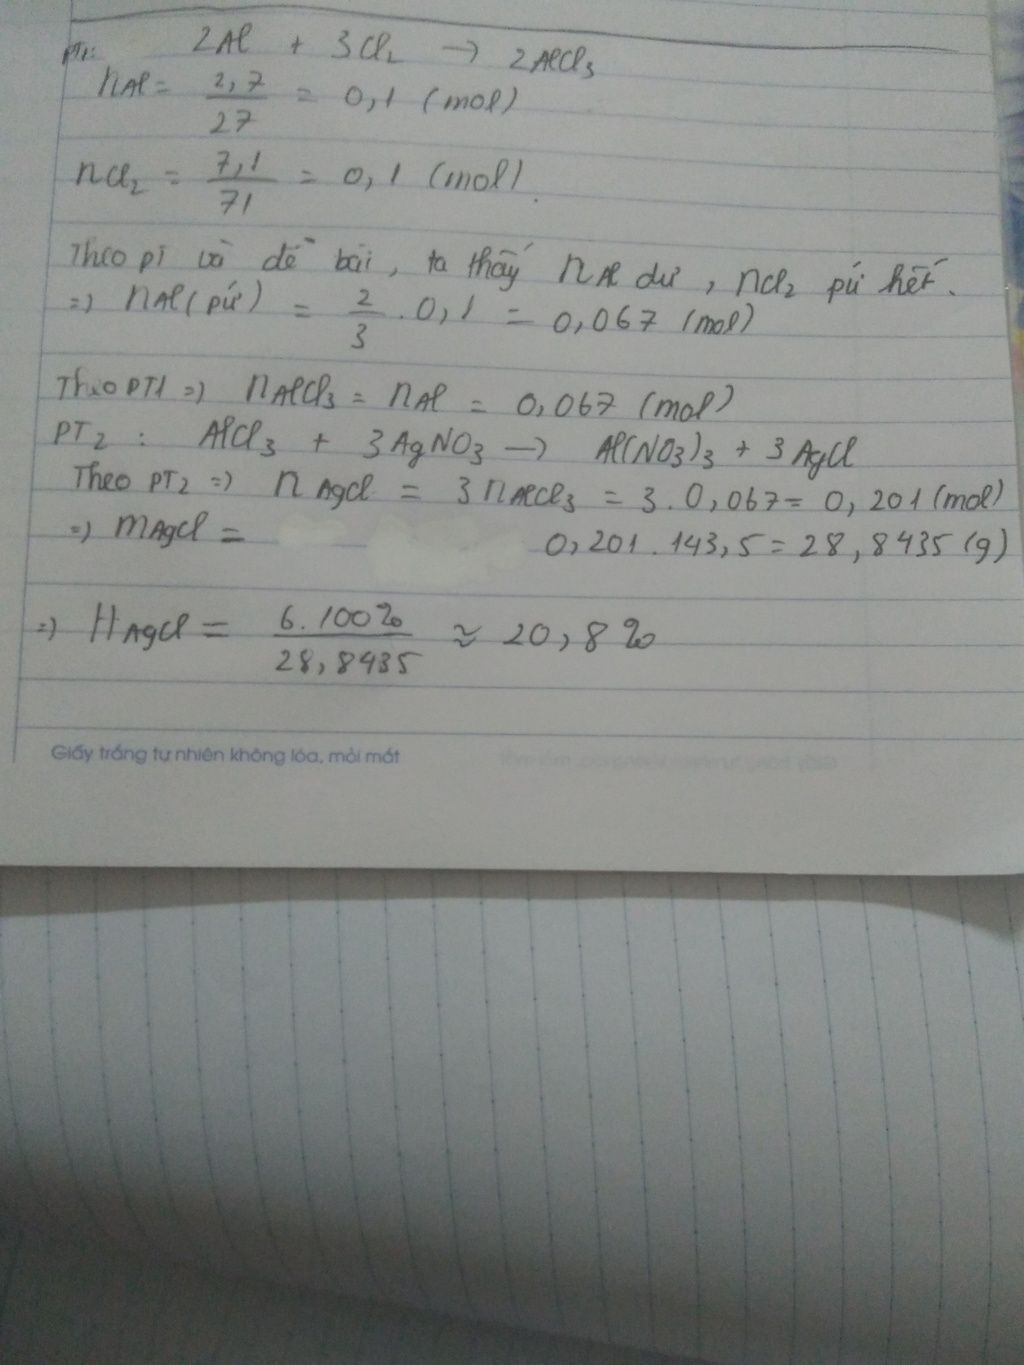 PT1: 2Al + 3Cl₂ → 2AlCl₃
nAl = 2,7/27 = 0,1 (mol)
nCl₂ = 7,1/71 = 0,1 (mol).
Theo pt và đề bài, ta thấy nAl dư, nCl₂ pứ hết.
=> nAl(pứ) = 2/3 . 0,1 = 0,067 (mol)
Theo PT1 => nAlCl₃ = nAl = 0,067 (mol)
PT2 : AlCl₃ + 3AgNO₃ → Al(NO₃)₃ + 3AgCl
Theo PT2 => nAgCl = 3nAlCl₃ = 3.0,067 = 0,201 (mol)
=> mAgCl = 0,201.143,5 = 28,8435 (g)
=> HAgCl = 6.100%/28,8435 ≈ 20,8%
Giấy trắng tự nhiên không lóa, mỏi mắt